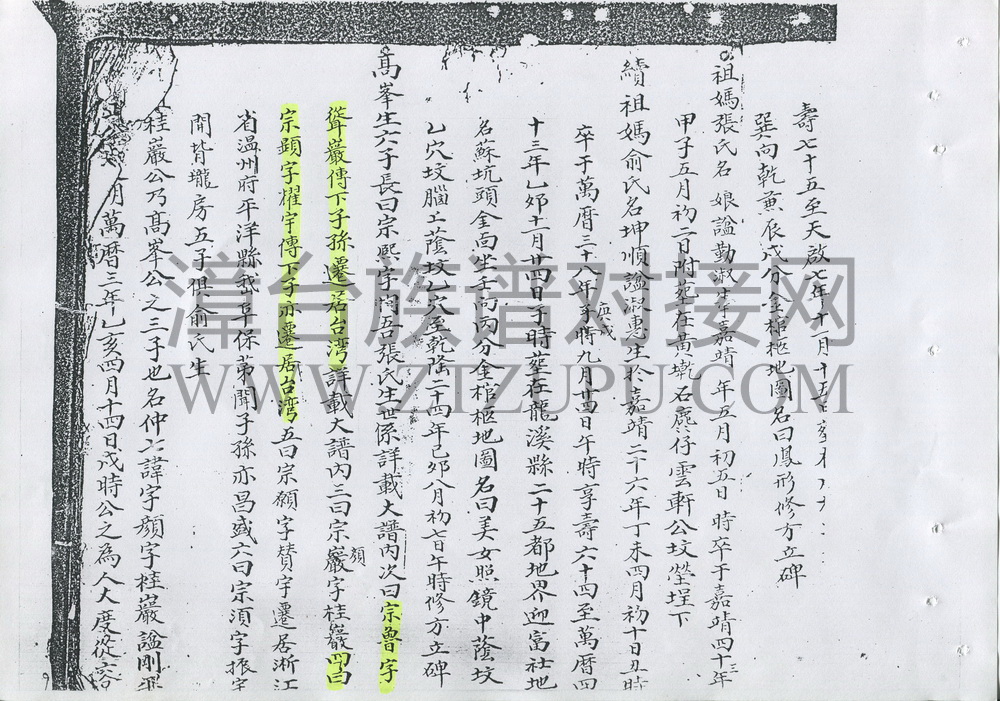 壽七十五至天啟七年十月十五
巽向乾兼辰戌分金棺柩地圖名曰鳳形修方立碑
祖媽張氏名娘謚勤淑李嘉靖 年五月初五日 時卒于嘉靖四十三年
甲子五月初二日附葬在黃墩石麑仔雲軒公坟塋埕下
續祖媽俞氏名坤順謚淑惠生於嘉靖二十六年丁未四月初十日丑時
卒于萬曆三十八年庚戌 時九月廿四日午時享壽六十四至萬曆四
十三年乙卯十一月廿四日子時葬在龍溪縣二十五都地界迎富社地
名蘇坑頭金面坐壬向丙分金棺柩地圖名曰美女照鏡中蔭坟
乙穴坟腦上蔭坟乙穴至乾隆二十四年己卯八月初七日午時修方立碑
高峯生六子長曰宗熙字閂吾張氏生世係詳載大譜內次曰宗魯字
聳巖傳下子孫遷居台湾詳載大譜內三曰宗巖顏字桂巖四曰
宗顕字耀宇傳下子亦遷居台湾五曰宗願字賛宇遷居淅江
省温州府平洋縣 阜保第聞子孫亦昌盛六曰宗湏字振宇
開皆壠房五子俱俞氏生
桂巖公乃髙峯公之三子也名仲 諱宇顔字桂巖謚剛
月萬曆三年乙亥四月十四日戌時公之為人大度從容
漳台族谱对接网
WWW.ZTZUPU.COM